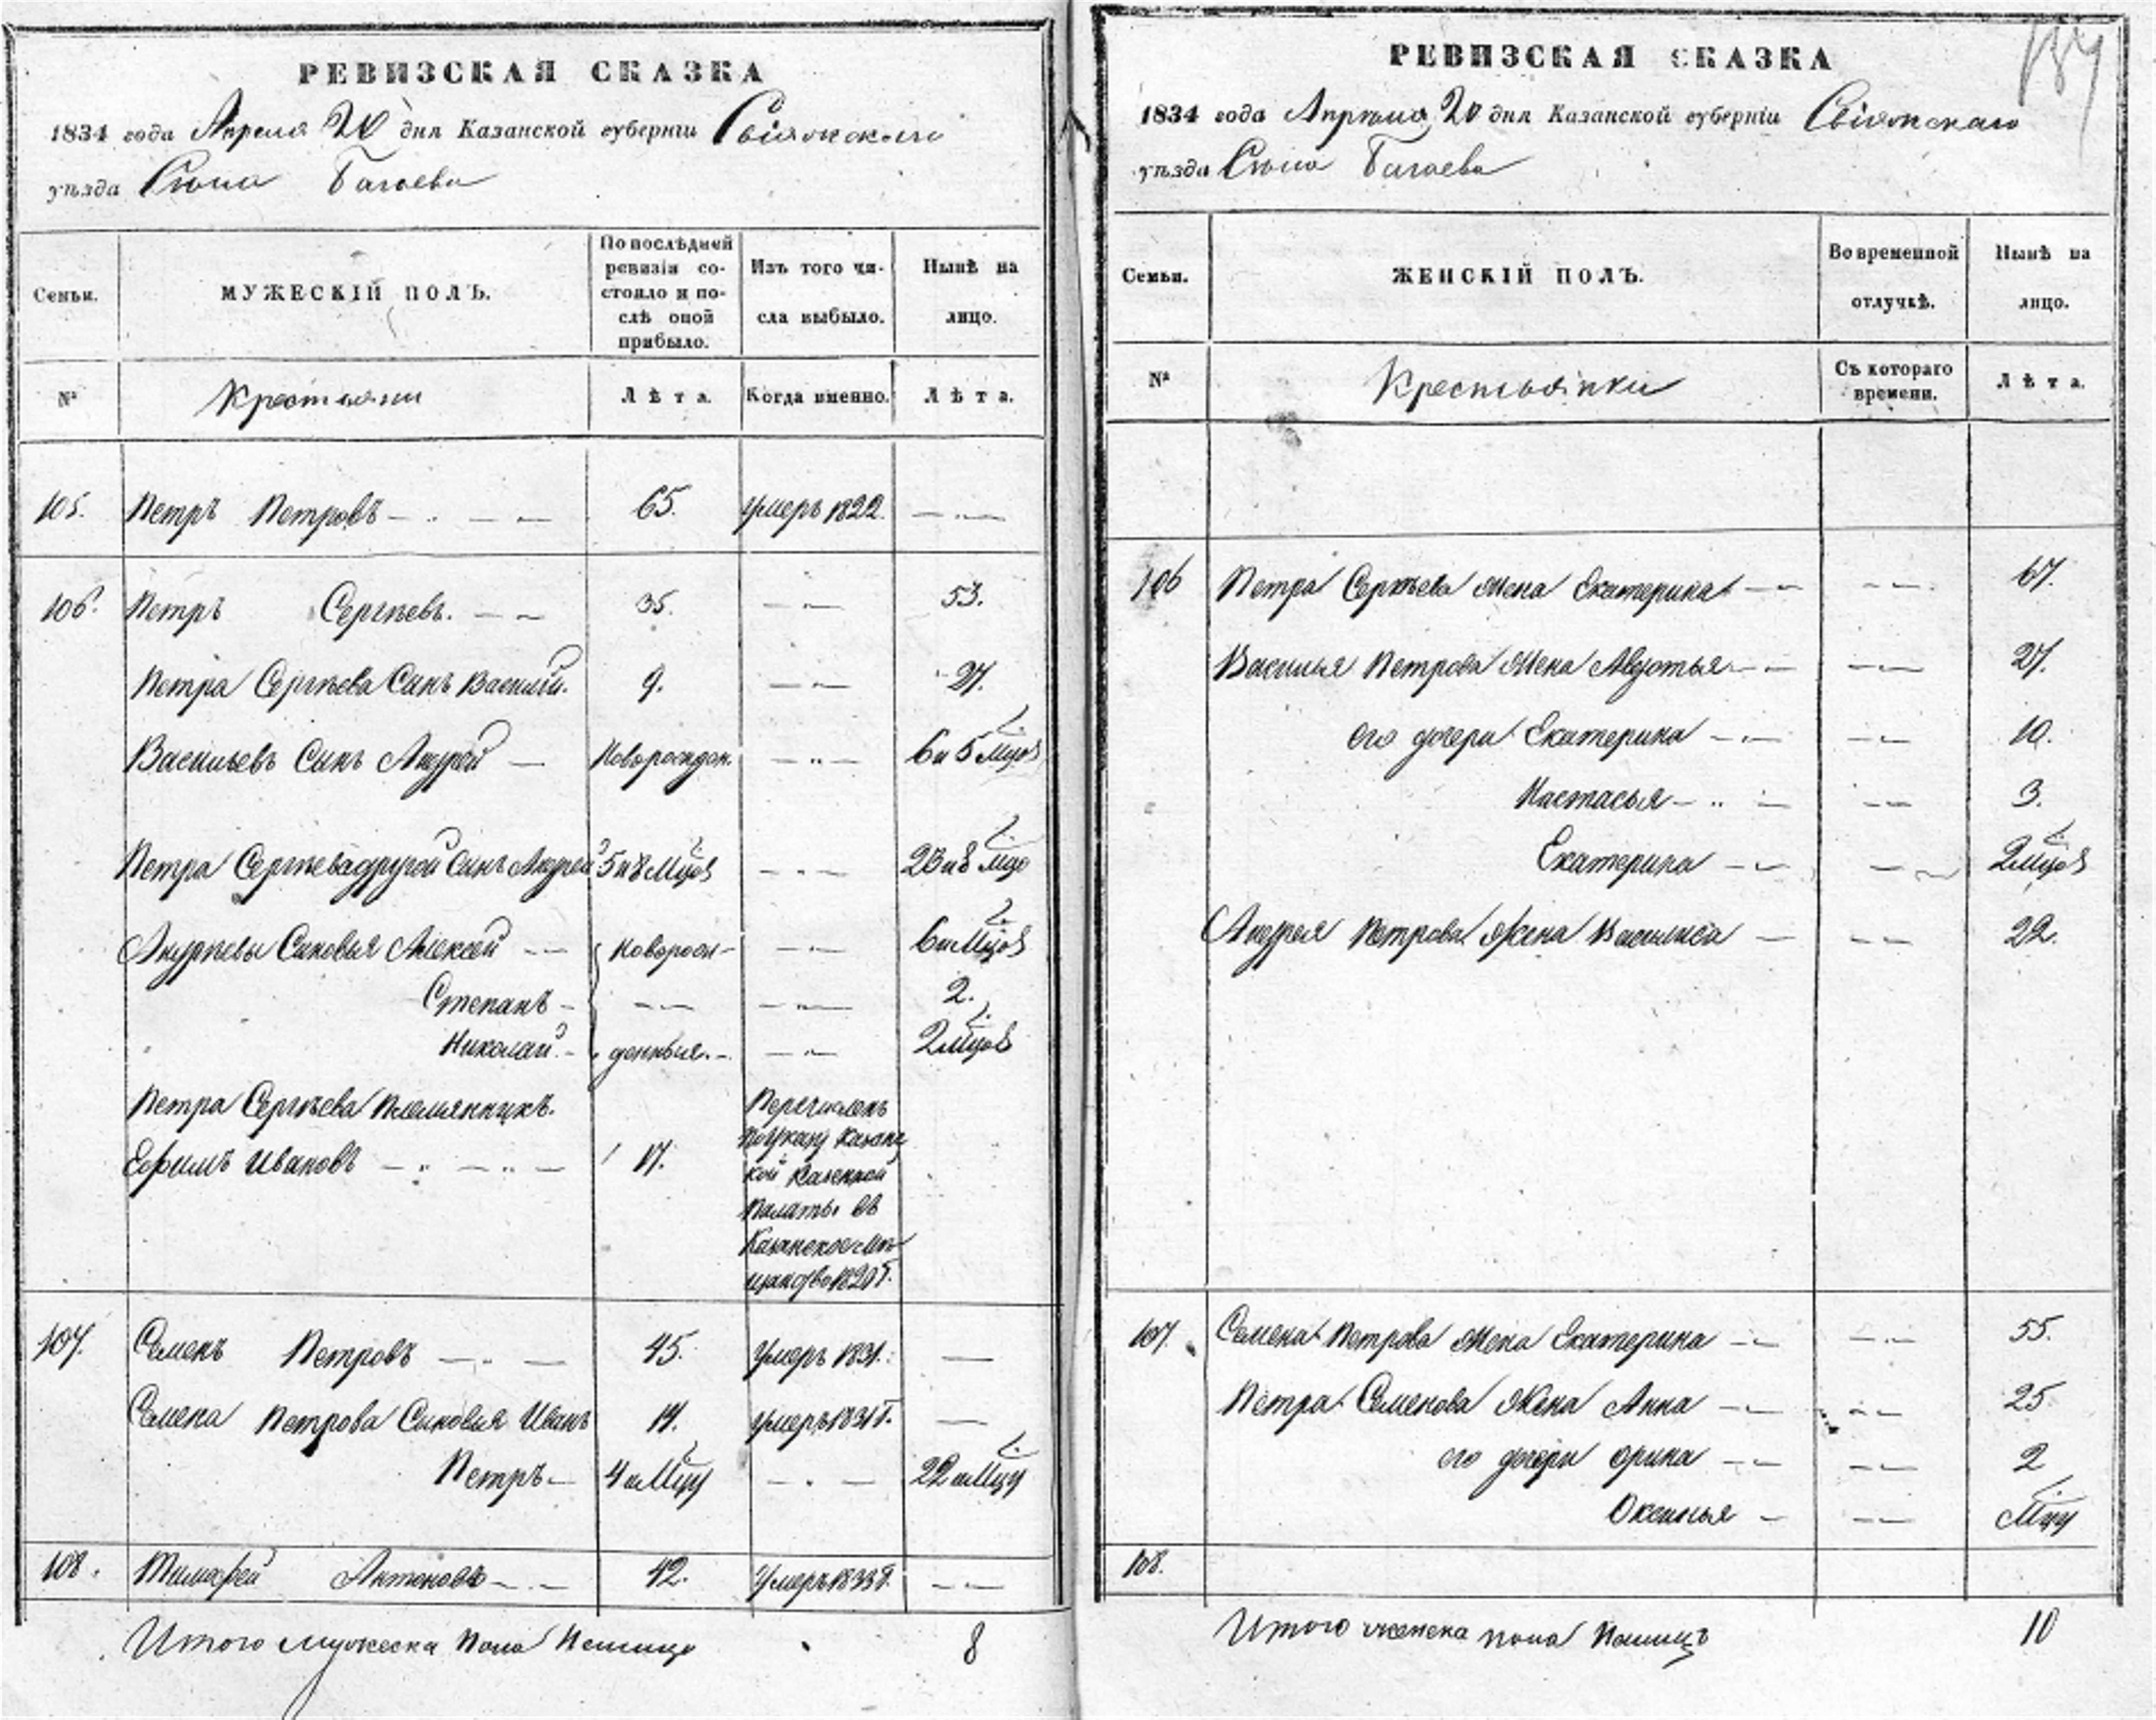 РЕВИЗСКАЯ СКАЗКА
1834 года Апреля 20 дня Казанской губерніи Свіяжскаго
уѣзда Села Багаева
Семьи. МУЖЕСКІЙ ПОЛЪ. По послѣдней ревизіи состояло и послѣ оной прибыло. Изъ того числа выбыло. Нынѣ на лицо.
№ Крестьяни Лѣта. Когда именно. Лѣта.
105. Петръ Петровъ 65. умеръ 1822.
106. Петръ Сергѣевъ. 35. 53.
Петра Сергѣева Сынъ Василій. 9. 27.
Васильевъ Сынъ Андрей Новорожден. 6 и 5 Мцов
Петра Сергѣева другой Сынъ Андрей 5 и 8 Мцов 23 и 8 Мцо
Андрѣевы Сыновья Алексей Новорож- 6 Мцов
Степанъ 2.
Николай денныя. 2 Мцов
Петра Сергѣева Племянникъ.
Ефимъ Ивановъ 17. Перечислен
по Указу Казанс
кой Казенной
Палаты въ
Казанское мѣ
щанство 1820 г.
107. Семенъ Петровъ 45. умеръ 1831.
Семена Петрова Сыновья Иванъ 14. умеръ 1831 г.
Петръ 4 Мцу 22 Мцу
108. Тимофей Антоновъ 42. умеръ 1833 г.
Итого мужеска пола 8
РЕВИЗСКАЯ СКАЗКА
1834 года Апреля 20 дня Казанской губерніи Свіяжскаго
уѣзда Села Багаева
Семьи. ЖЕНСКІЙ ПОЛЪ. Во временной отлучкѣ. Нынѣ на лицо.
№ Крестьянки Съ котораго времени. Лѣта.
106 Петра Сергѣева Жена Екатерина 67.
Василья Петрова Жена Авдотья 27.
его дочери Екатерина 10.
Настасья 3.
Екатерина 2 Мцов
Андрея Петрова Жена Василиса 22.
107. Семена Петрова Жена Екатерина 55.
Петра Семенова Жена Анна 25
его дочери Орина 2
Оксинья Мцу
108.
Итого женска пола 10